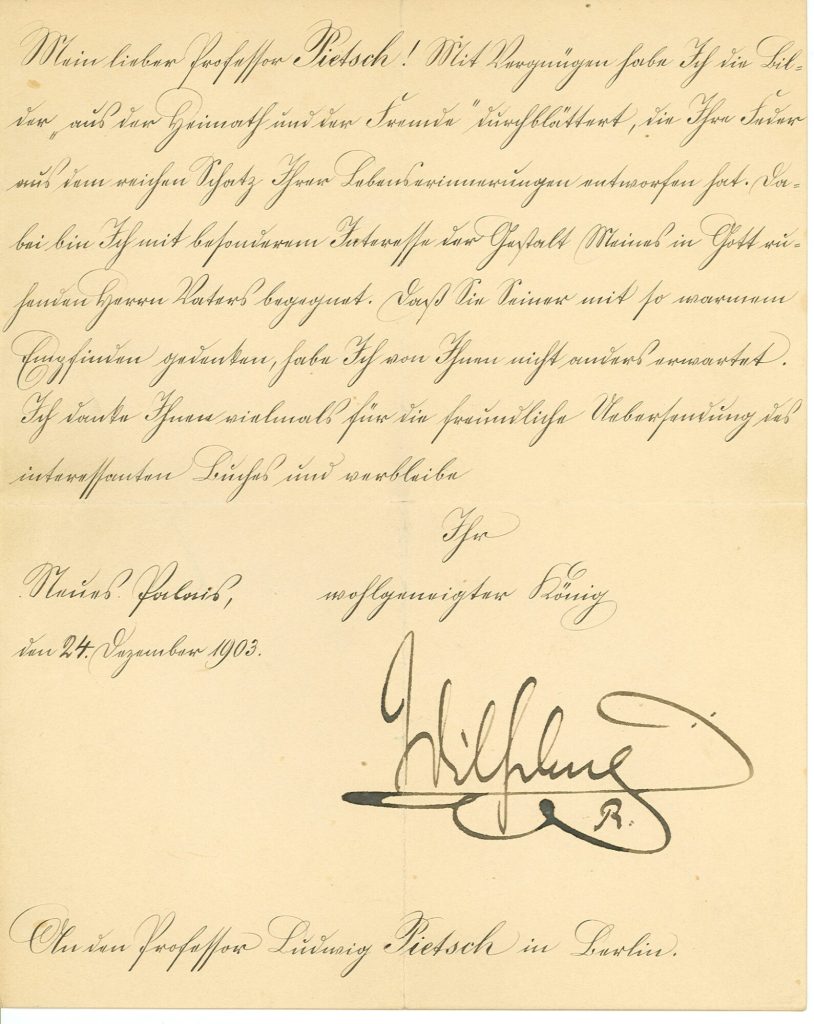 Mein lieber Professor Pietsch! Mit Vergnügen habe Ich die Bil-
der „aus der Heimath und der Fremde" durchblättert, die Ihre Feder
aus dem reichen Schatz Ihrer Lebenserinnerungen entworfen hat. Da-
bei bin Ich mit besonderem Interesse der Gestalt Meines in Gott ru-
henden Herrn Vaters begegnet. Daß Sie Seiner mit so warmem
Empfinden gedenken, habe Ich von Ihnen nicht anders erwartet.
Ich danke Ihnen vielmals für die freundliche Uebersendung des
interessanten Buches und verbleibe
Ihr
wohlgeneigter König
Neues Palais,
den 24. Dezember 1903.
Wilhelm
R.
An den Professor Ludwig Pietsch in Berlin.